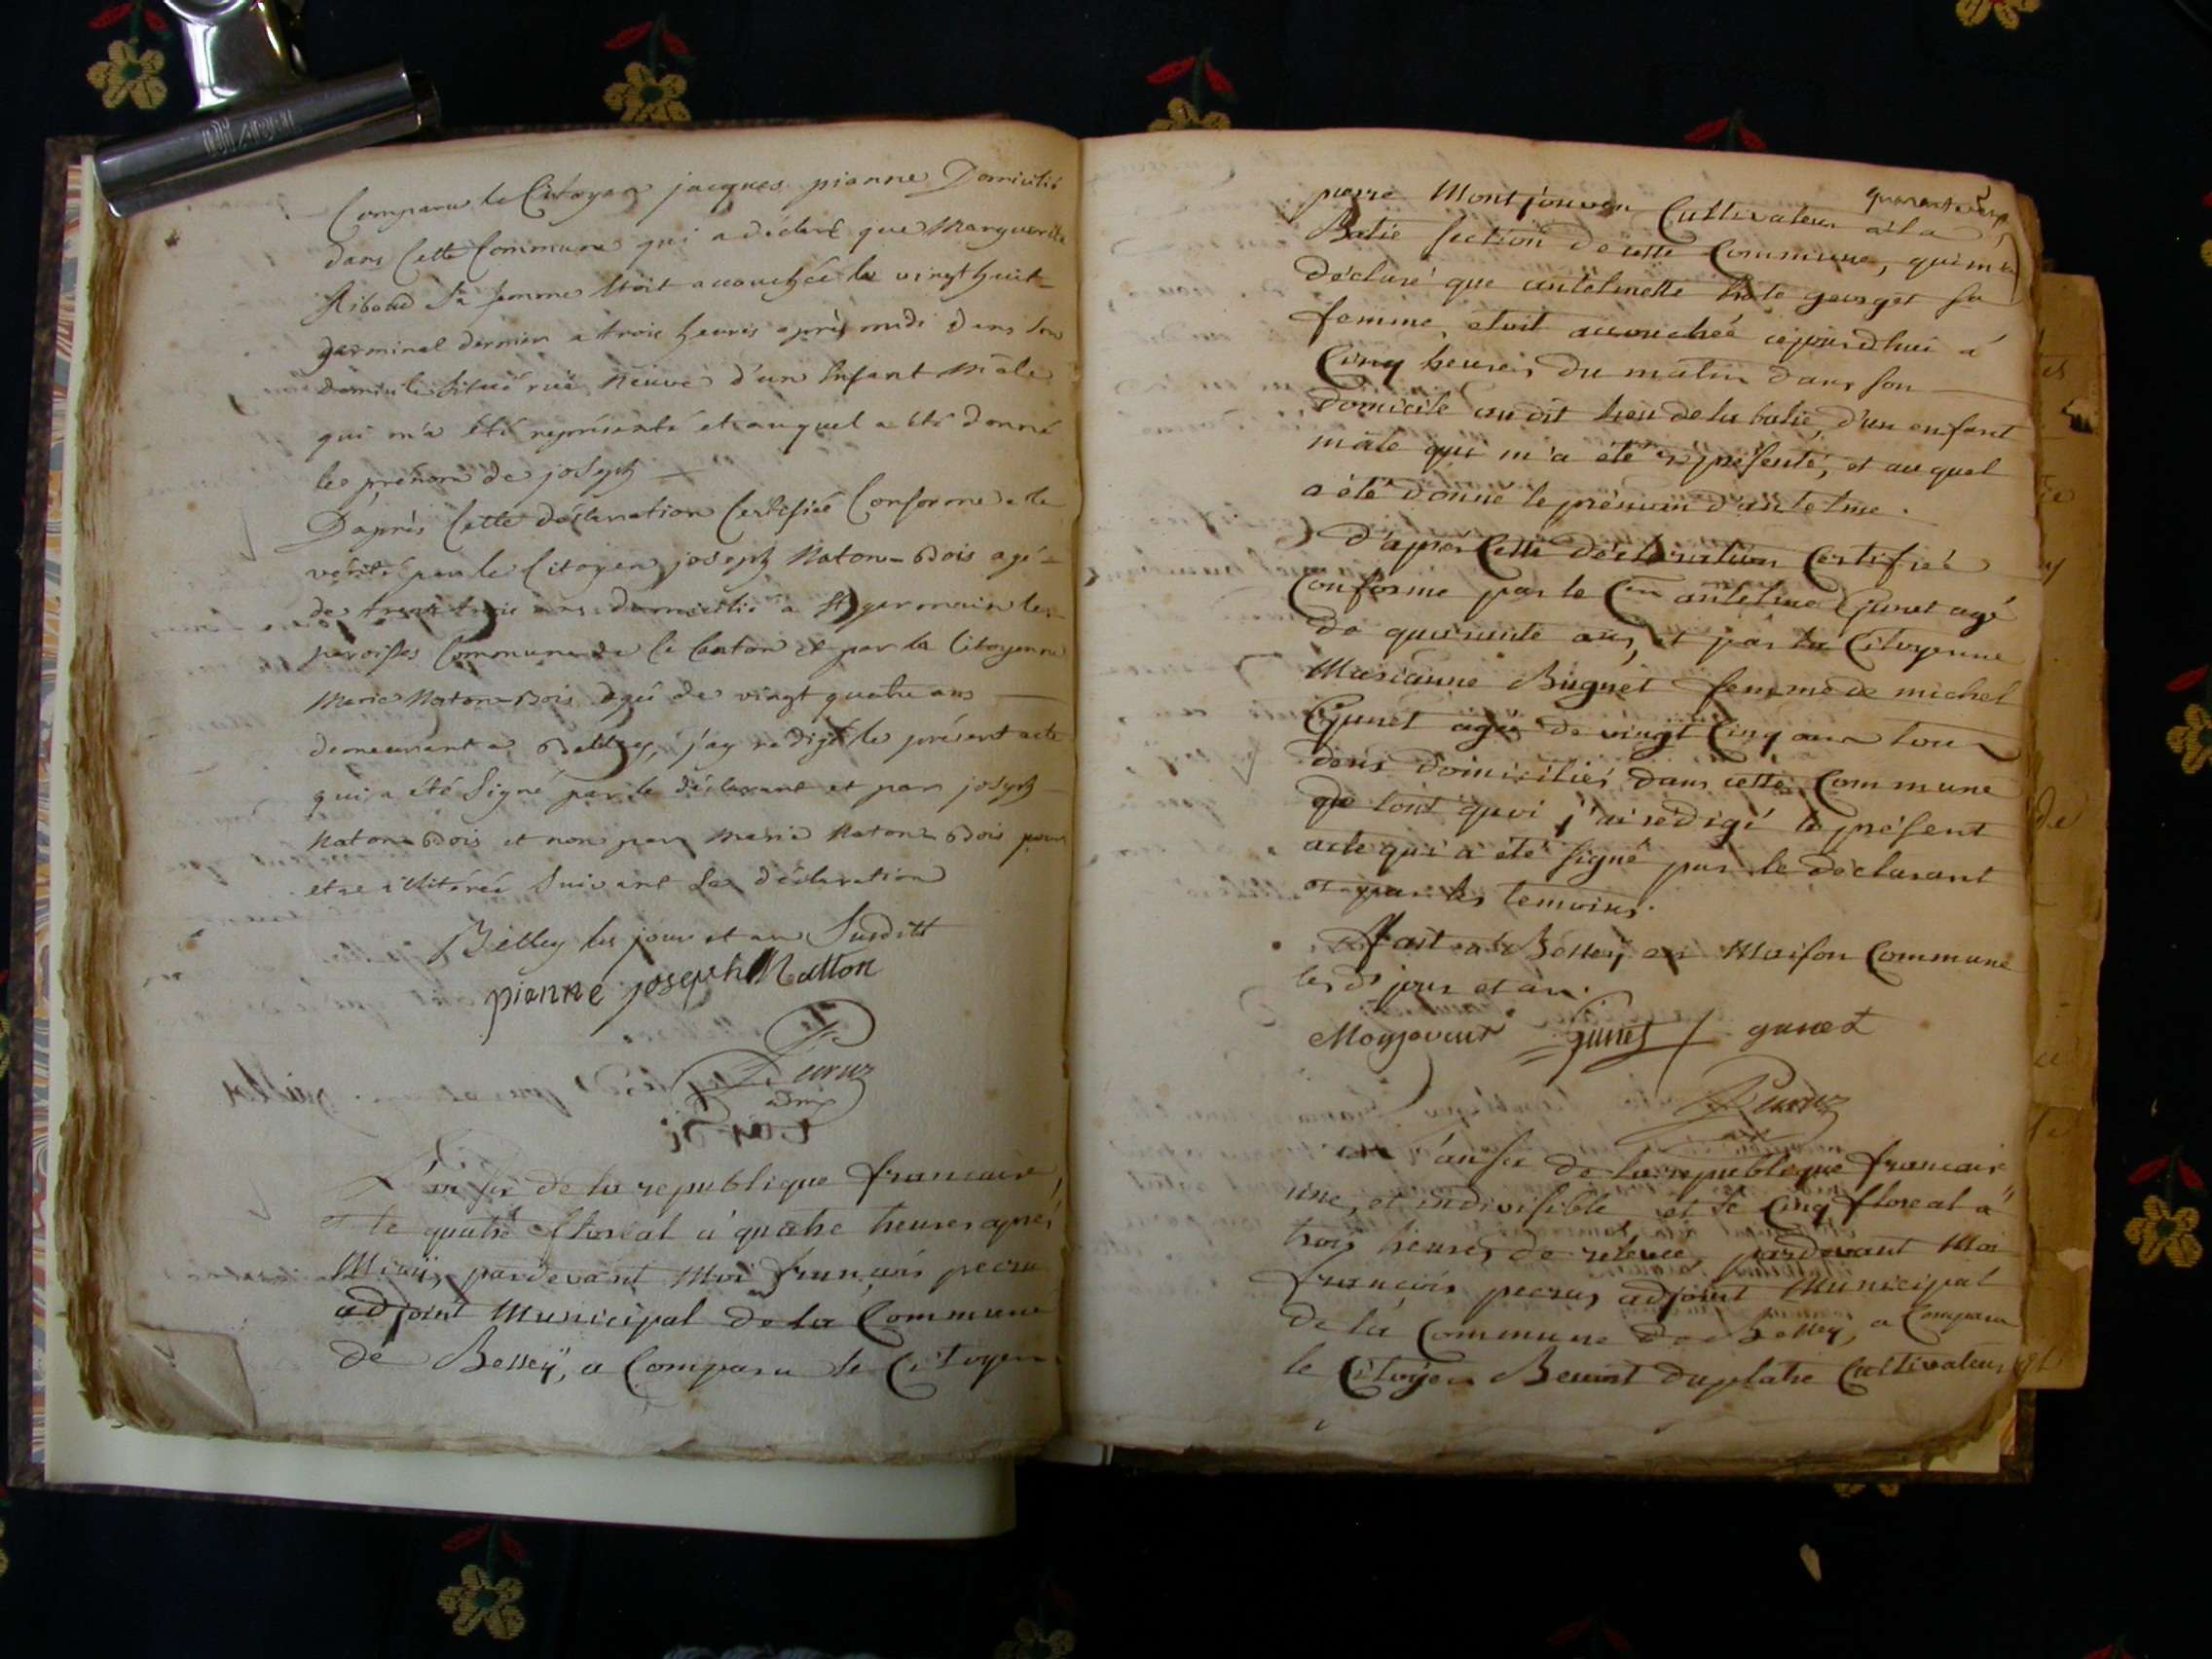 Comparu le Citoyen jacques pianne Domicilié
dans Cette Commune qui a déclaré que Marguerite
Ribaud Sa femme Etoit accouchée le vingt huit
germinal dernier a trois heures après midi dans son
domicile Situé rue neuve d'un Enfant Mâle
qui m'a été représenté et auquel a été donné
le prénom de joseph
D'après Cette déclaration Certifiée Conforme a la
vérité par le Citoyen joseph Naton-Bois agé
de trente trois ans domicilié a St germain les
paroisses Commune de Ce Canton et par la Citoyenne
Marie Naton-Bois agée de vingt quatre ans
demeurant a Belley, j'ay redigé le présent acte
qui a été Signé par le déclarant et par joseph
Naton-Bois et non par Marie Naton-Bois pour
etre illitérée Suivant Sa déclaration
Belley les jour et an Susditt
pianne joseph Natton
Peeruz
adm
L'an six de la republique francaise
et le quatre floréal a quatre heures après
Midÿ, pardevant Moi francois peeru
adjoint Municipal de la Commune
de Belleÿ, a Comparu le Citoyen
quarante sept
pierre Montjouven Cultivateur a la
Batie section de cette Commune, qui m'a
déclaré que antelmette george sa
femme, etoit accouchée cejourdhui a
Cinq heures du matin dans son
domicile au dit lieu de la batie, d'un enfant
mâle qui m'a été représenté, et auquel
a été donné le prénom d'antelme.
d'après Cette déclaration Certifiée
Conforme par le Cen antelme Gunet agé
de quarante ans, et par la Citoyenne
Marianne Buguet femme de michel
Gunet agée de vingt Cinq ans tous
deux domiciliés dans cette Commune
de tout quoi j'ai rédigé le présent
acte qui a été signé par le déclarant
et par les temoins.
fait a Belleÿ en Maison Commune
les dt jour et an.
Monjovent Gunet gunet
Peeruz
L'an six de la republique francaise
une, et indivisible et le Cinq floreal a
trois heures de relevée pardevant Moi
francois peeruz adjoint Municipal
de la Commune de Belley, a Comparu
le Citoyen Benoit Duplatre Cultivateur